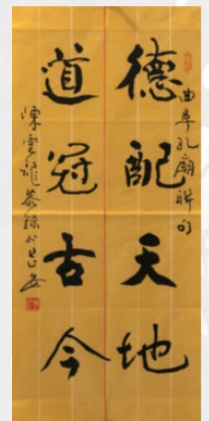 曲阜孔廟聯句
德配天地
道冠古今
陳雲龍恭錄於